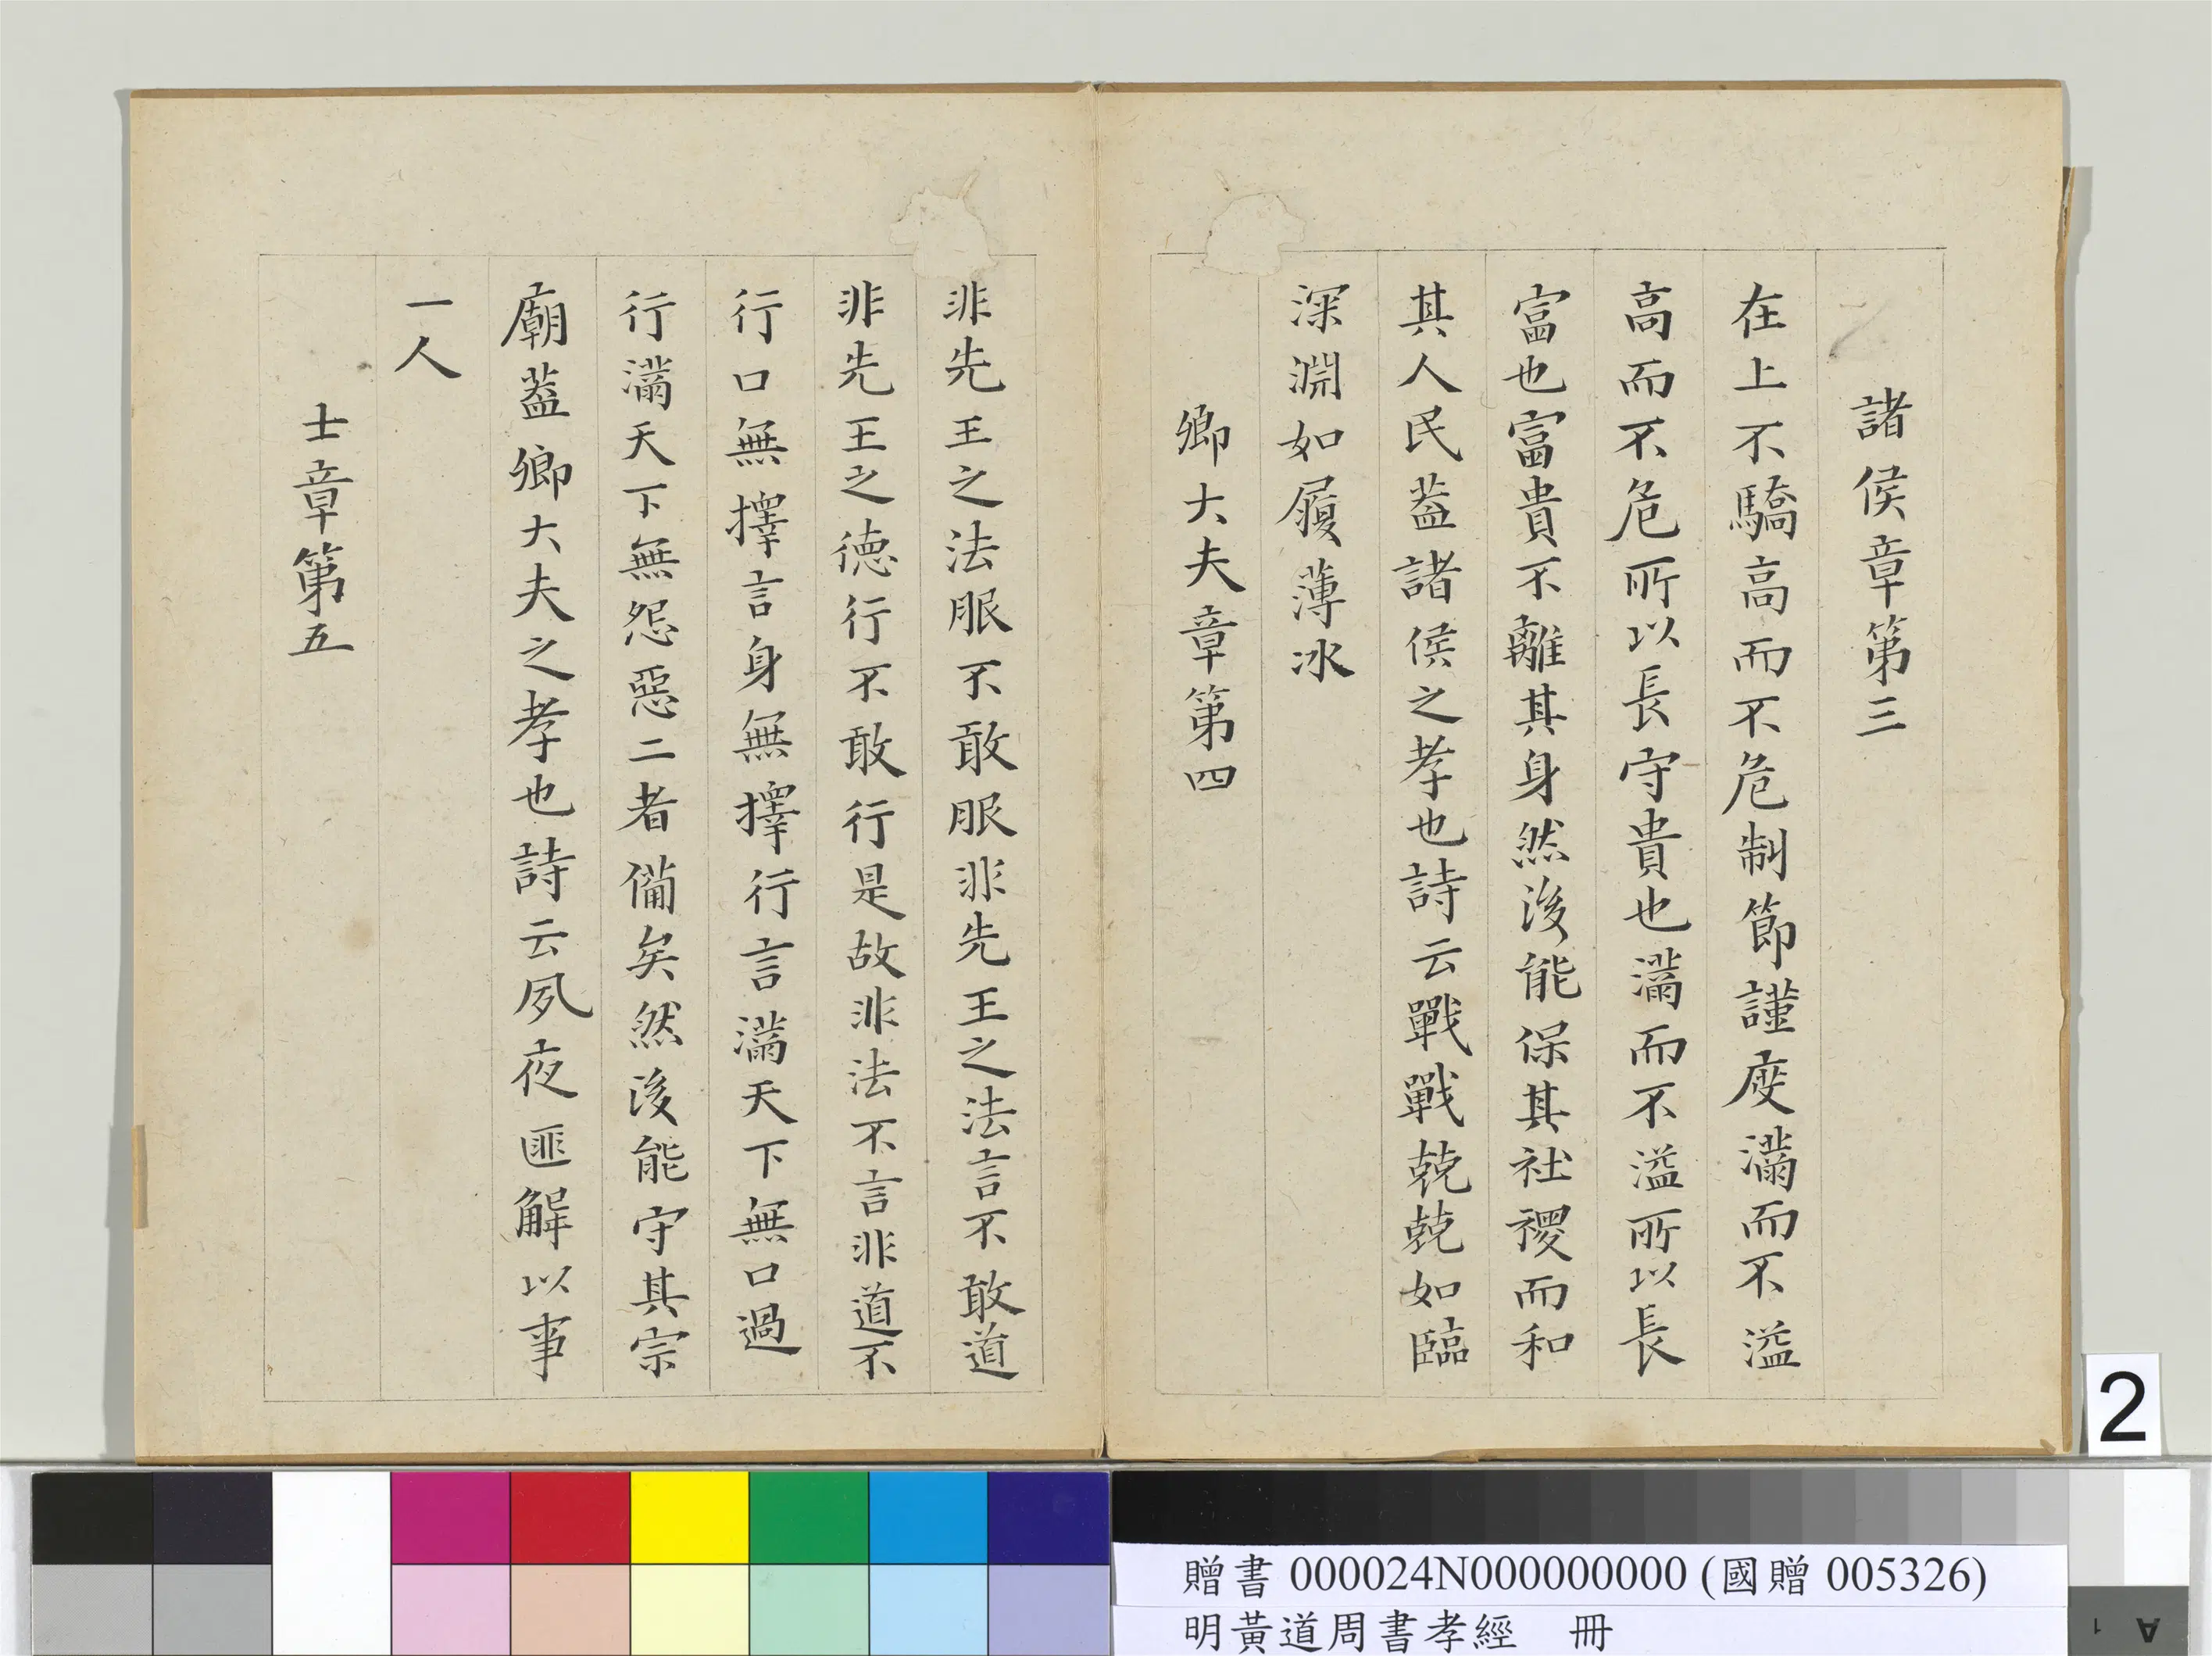 諸侯章第三
在上不驕高而不危制節謹度滿而不溢
高而不危所以長守貴也滿而不溢所以長
富也富貴不離其身然後能保其社稷而和
其人民蓋諸侯之孝也詩云戰戰兢兢如臨
深淵如履薄冰
卿大夫章第四
非先王之法服不敢服非先王之法言不敢道
非先王之德行不敢行是故非法不言非道不
行口無擇言身無擇行言滿天下無口過
行滿天下無怨惡二者備矣然後能守其宗
廟蓋卿大夫之孝也詩云夙夜匪解以事
一人
士章第五
2
贈書 000024N000000000 (國贈 005326)
明黃道周書孝經 冊
A 1